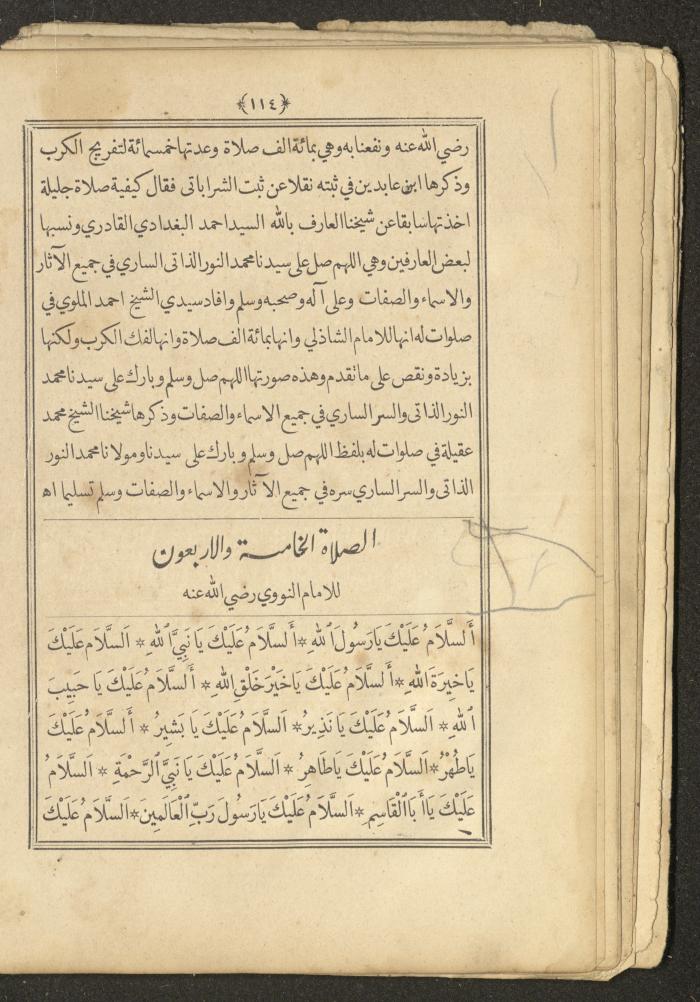 ﴿١١٤﴾
رضي الله عنه ونفعنا به وهي بمائة الف صلاة وعدتها خمسمائة لتفريج الكرب
وذكرها ابن عابدين في ثبته نقلا عن ثبت الشراباتى فقال كيفية صلاة جليلة
اخذتها سابقا عن شيخنا العارف بالله السيد احمد البغدادي القادري ونسبها
لبعض العارفين وهي اللهم صل على سيدنا محمد النور الذاتى الساري في جميع الآثار
والاسماء والصفات وعلى آله وصحبه وسلم وافاد سيدي الشيخ احمد الملوي في
صلوات له انها للامام الشاذلي وانها بمائة الف صلاة وانها لفك الكرب ولكنها
بزيادة ونقص على ماتقدم وهذه صورتها اللهم صل وسلم وبارك على سيدنا محمد
النور الذاتى والسر الساري في جميع الاسماء والصفات وذكرها شيخنا الشيخ محمد
عقيلة في صلوات له بلفظ اللهم صل وسلم وبارك على سيدنا ومولانا محمد النور
الذاتى والسر الساري سره في جميع الآثار والاسماء والصفات وسلم تسليما اه
الصلاة الخامسة والاربعون
للامام النووي رضي الله عنه
أَلسَّلَامُ عَلَيْكَ يَارَسُولَ اللهِ * أَلسَّلَامُ عَلَيْكَ يَا نَبِيَّ اللهِ * اَلسَّلَامُ عَلَيْكَ
يَاخِيرَةَ اللهِ * أَلسَّلَامُ عَلَيْكَ يَاخَيْرَ خَلْقِ اللهِ * أَلسَّلَامُ عَلَيْكَ يَا حَبِيبَ
اللهِ * اَلسَّلَامُ عَلَيْكَ يَا نَذِيرُ * اَلسَّلَامُ عَلَيْكَ يَا بَشِيرُ * أَلسَّلَامُ عَلَيْكَ
يَاطُهْرُ * اَلسَّلَامُ عَلَيْكَ يَاطَاهِرُ * اَلسَّلَامُ عَلَيْكَ يَا نَبِيَّ الرَّحْمَةِ * اَلسَّلَامُ
عَلَيْكَ يَاأَبَاالْقَاسِمِ * اَلسَّلَامُ عَلَيْكَ يَارَسُولَ رَبِّ الْعَالَمِينَ * اَلسَّلَامُ عَلَيْكَ